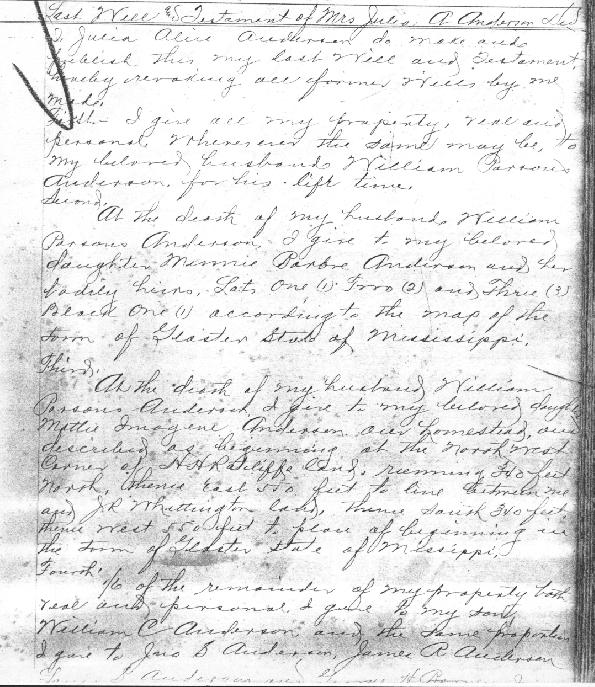 Last Will & Testament of Mrs Julia A Anderson Decd
I Julia Alice Anderson do make and
publish this my last Will and Testament
hereby revoking all former Wills by me
made.
First.- I give all my property, real and
personal, wherever the same may be, to
my beloved husband, William Parsons
Anderson, for his life time.
Second.
At the death of my husband, William
Parsons Anderson, I give to my beloved
daughter Minnie Barbre Anderson and her
bodily heirs, Lots One (1) Two (2) and Three (3)
Block One (1) according to the map of the
town of Gloster State of Mississippi.
Third.
At the death of my husband William
Parsons Anderson, I give to my beloved daughter
Mattie Imogene Anderson our homestead, and
described as beginning at the North West
Corner of H H Ratcliffe land, running 340 feet
North, thence East 550 feet to line between me
and J R Whittington land, thence South 340 feet
thence West 550 feet to place of beginning in
the town of Gloster State of Mississippi.
Fourth.
1/6 of the remainder of my property both
real and personal, I give to my son,
William C Anderson and the same proportion
I give to Jno S Anderson, James R Anderson
Anderson and H